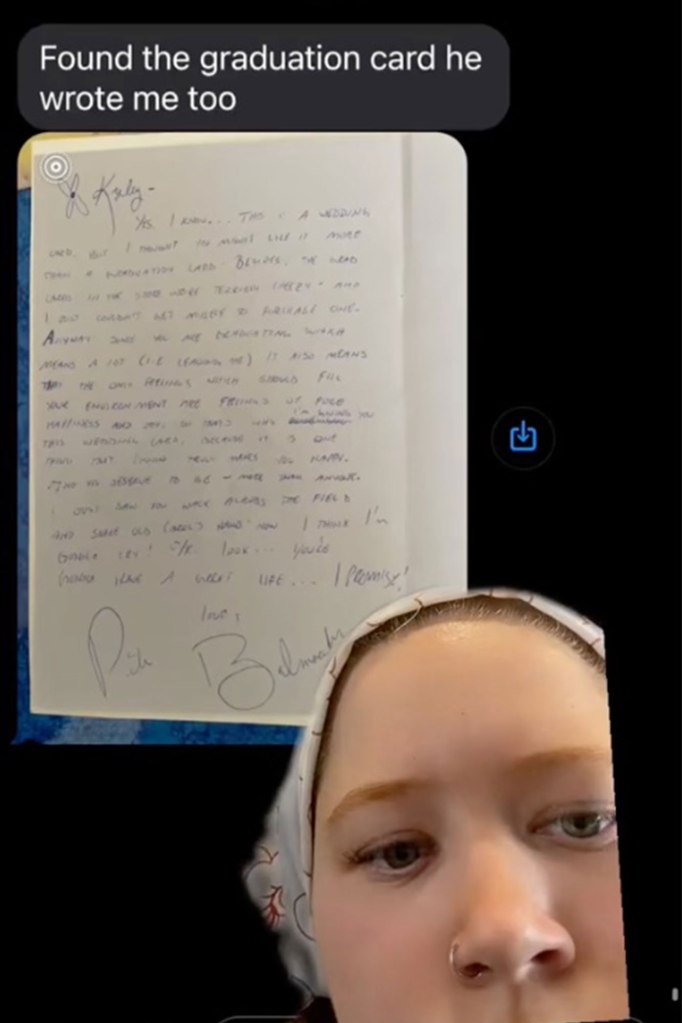 Found the graduation card he
wrote me too
Yes, I know... This is a wedding
card, but I thought you might like it more
than a graduation card. Besides, the grad
cards in the store were terribly cheezy - and
I just couldn't get myself to purchase one.
Anyway since you are graduating which
means a lot (i.e. leaving me) it also means
that the only feelings which should fill
your environment are feelings of pure
happiness and joy. So that's why I'm giving you
this wedding card, because it is one
thing that I know truly makes you happy.
And you deserve to be - more than anyone.
I just saw you walk across the field
and shake old Carol's hand now I think I'm
gonna cry! Look... you're
gonna have a great life... I promise!
Love,